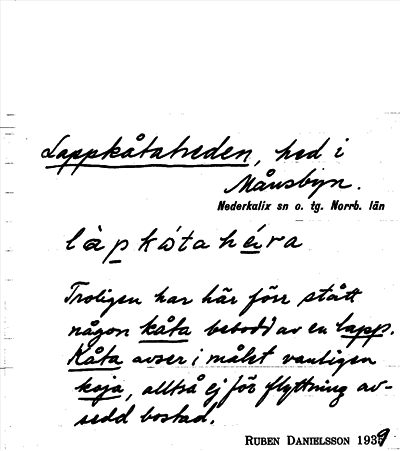 Lappkåtaheden, hed i
Månsbyn.
Nederkalix sn o. tg. Norrb. län
làpkótahéra
Troligen har här förr stått
någon kåta bebodd av en lapp.
Kåta avser i målet vanligen
koja, alltså ej för flyttning av-
sedd bostad.
RUBEN DANIELSSON 1939